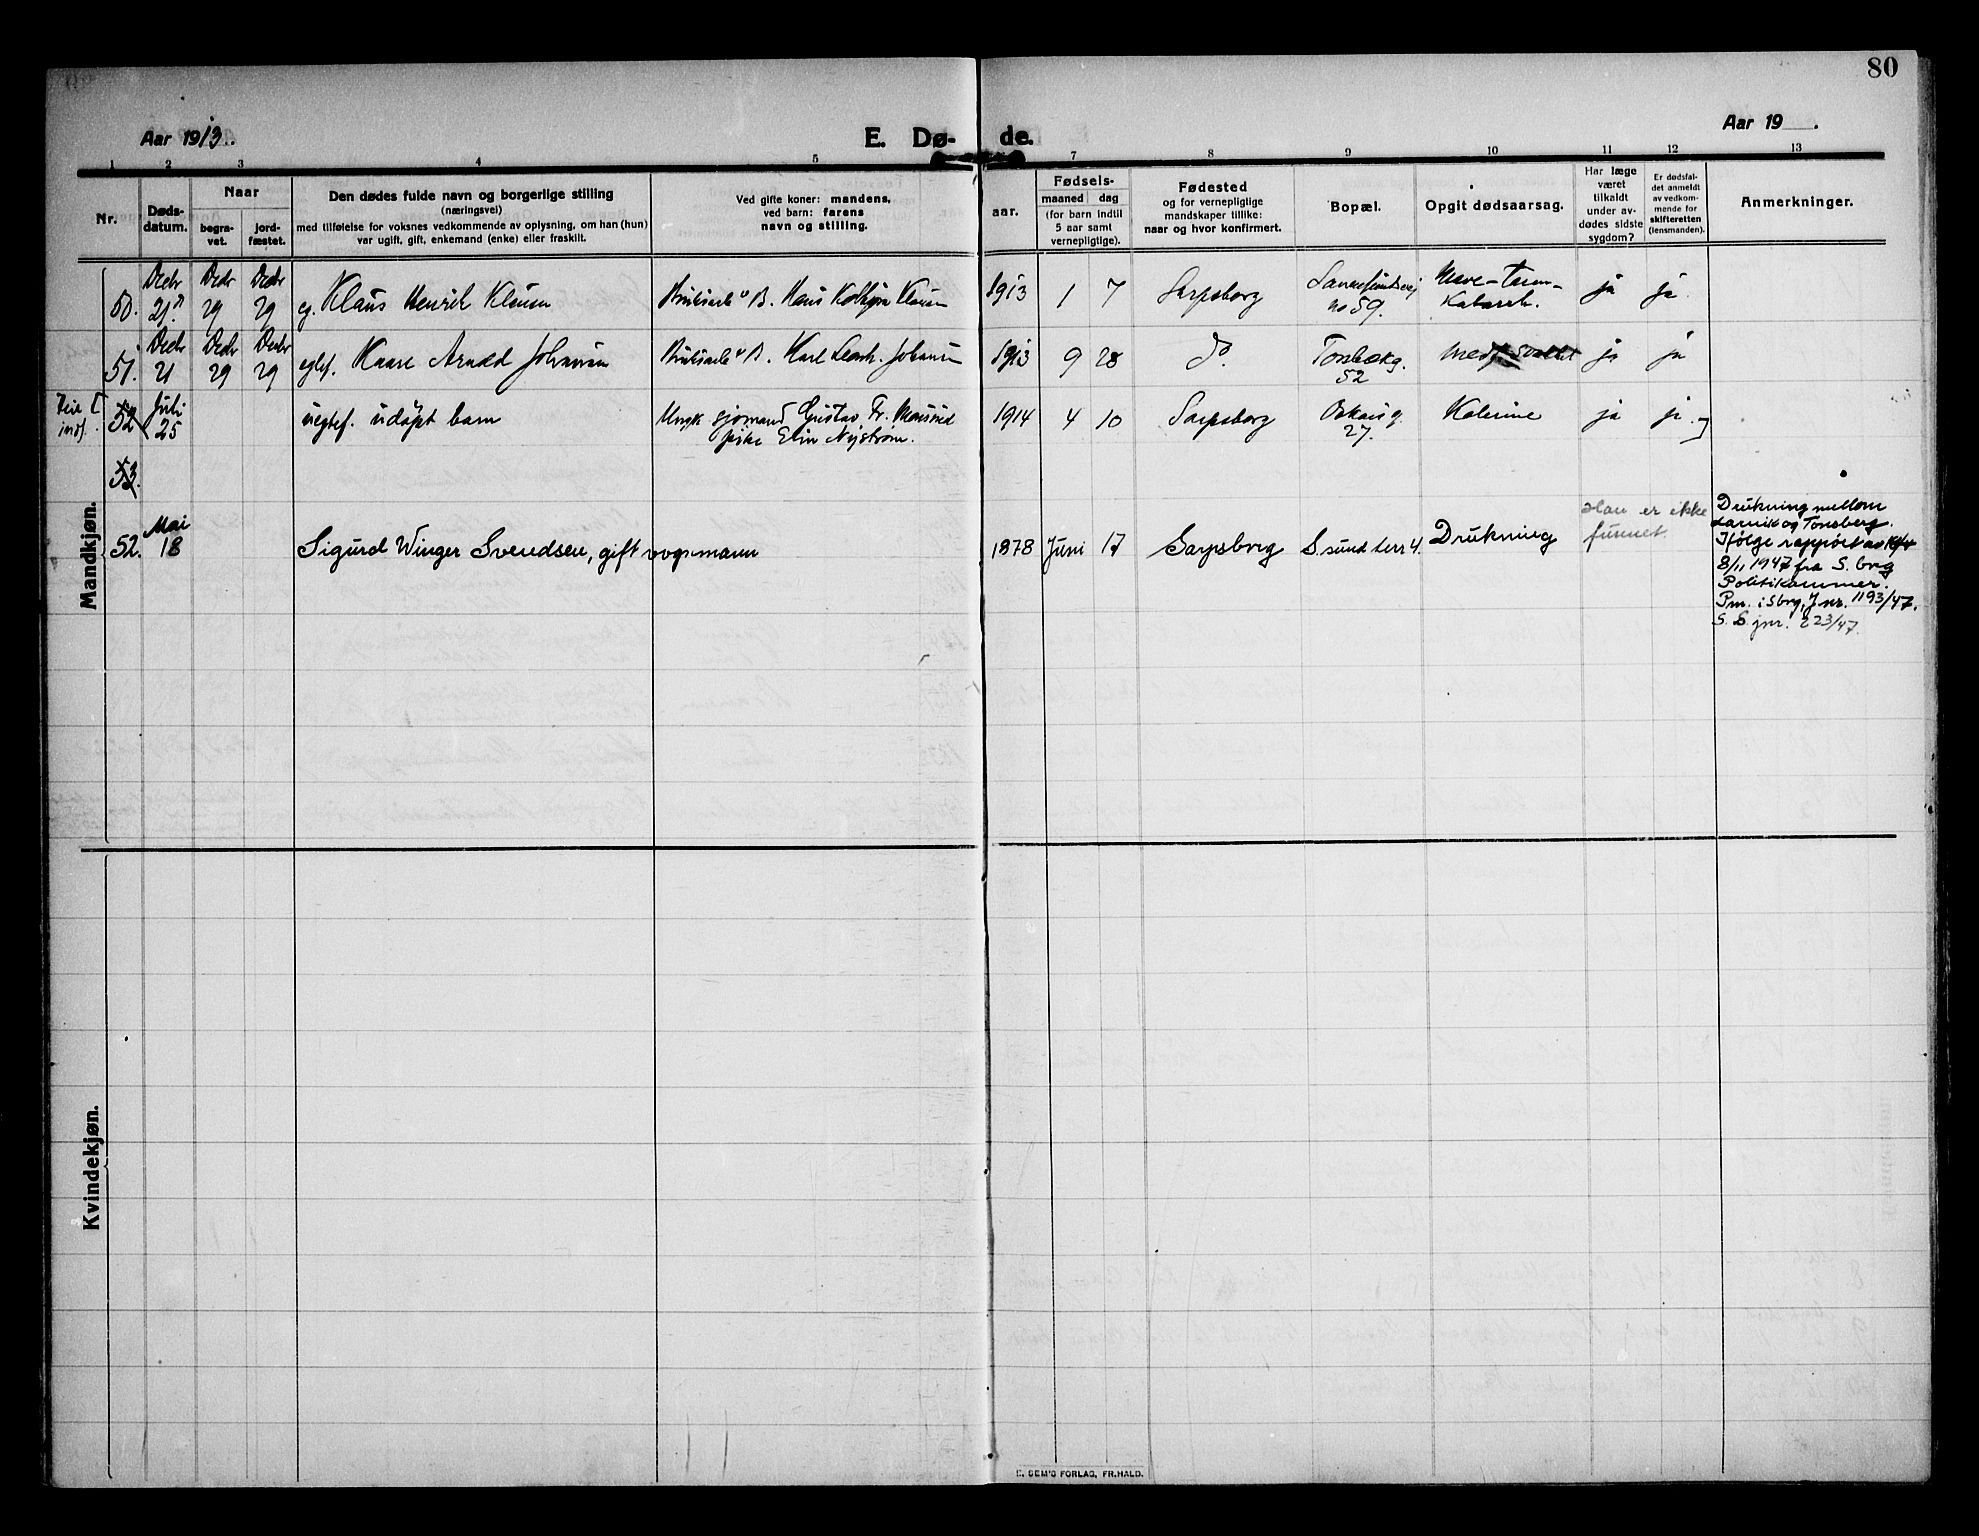 80
Aar 1913.
E. Dø-
de.
Aar 19 .
1 2 3 4 5 7 8 9 10 11 12 13
Nr.
Døds-
datum.
Naar
begra-
vet.
jord-
fæstet.
Den dødes fulde navn og borgerlige stilling
(næringsvei)
med tilføielse for voksnes vedkommende av oplysning, om han (hun)
var ugift, gift, enkemand (enke) eller fraskilt.
Ved gifte koner: mandens,
ved barn: farens
navn og stilling.
aar.
Fødsels-
maaned dag
(for barn indtil
5 aar samt
vernepligtige).
Fødested
og for vernepligtige
mandskaper tillike:
naar og hvor konfirmert.
Bopæl.
Opgit dødsaarsag.
Har læge
været
tilkaldt
under av-
dødes sidste
sygdom?
Er dødsfal-
det anmeldt
av vedkom-
mende for
skifteretten
(lensmanden).
Anmerkninger.
Mandkjøn.
50. Decbr 21 Decbr 29 Decbr 29 eg. Klaus Henrik Klausen B. Hans Klausen 1913 1 7 Sarpsborg
no 59.
Mave-Tarm-
Katarrh.
ja ja
51. Decbr 21 Decbr 29 Decbr 29 egtef. Kaare Arnold Johansen B. Karl Johansen 1913 9 28 do. Torsbækg.
52
ja ja
52 Juli
25
uegtef. udøpt barn
Ungk sjømand Gustav Fr.
pike Elin Nystrøm.
1914 4 10 Sarpsborg Oskarsg.
27.
ja ja
53.
52. Mai
18
Sigurd Winger Svendsen, gift vognmann 1878 Juni 17 Sarpsborg S.sund terr 4. Drukning
Han er ikke
funnet.
Drukning mellom
Larvik og Tønsberg.
Ifølge rapport av
8/11 1947 fra S. brg
Politikammer.
Pm. i Sbrg, J nr. 1193/47.
S. S. jnr. 223/47.
Kvindekjøn.
E. SEM'S FORLAG, FR.HALD.